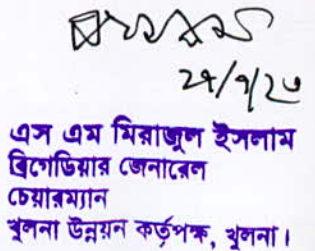 ২৭/৭/২৩
এস এম মিরাজুল ইসলাম
ব্রিগেডিয়ার জেনারেল
চেয়ারম্যান
খুলনা উন্নয়ন কর্তৃপক্ষ, খুলনা।